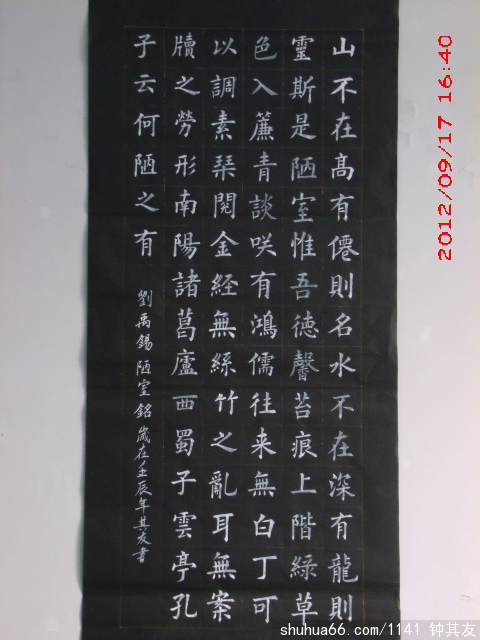 山不在髙有僊則名水不在深有龍則
靈斯是陋室惟吾徳馨苔痕上階綠草
色入簾青談咲有鴻儒往来無白丁可
以調素琴閱金經無絲竹之亂耳無案
牘之勞形南陽諸葛廬西蜀子雲亭孔
子云何陋之有
劉禹錫陋室銘歲在壬辰年其友書
2012/09/17 16:40
shuhua66.com/1141 钟其友